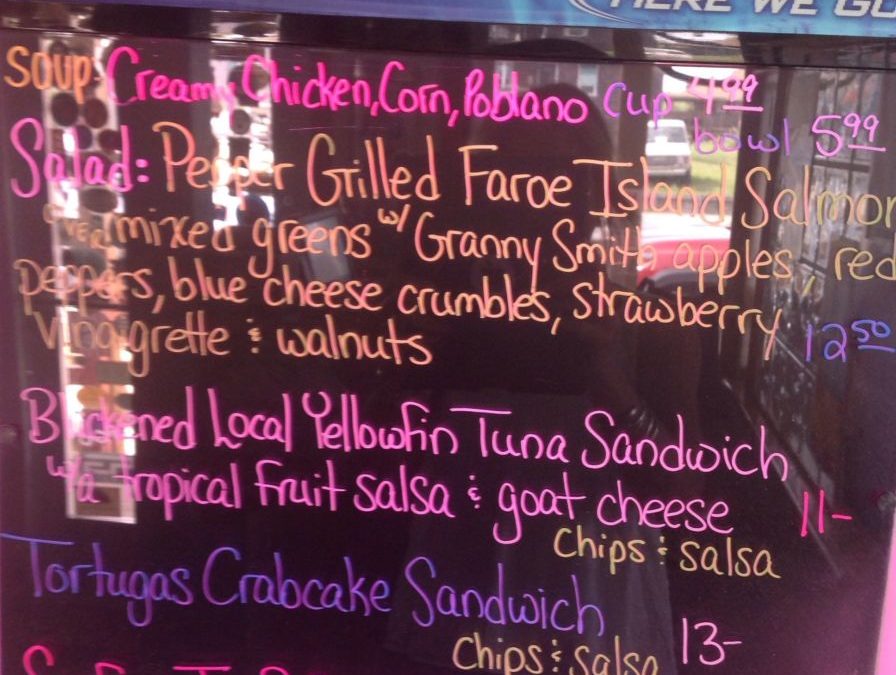 HERE WE GO
Soup: Creamy Chicken, Corn, Poblano Cup 4.99
bowl 5.99
Salad: Pepper Grilled Faroe Island Salmon
over mixed greens w/ Granny Smith apples, red
peppers, blue cheese crumbles, strawberry
Vinaigrette & walnuts 12.50
Blackened Local Yellowfin Tuna Sandwich
w/a tropical fruit salsa & goat cheese 11-
Chips & salsa
Tortugas Crabcake Sandwich 13-
Chips & salsa